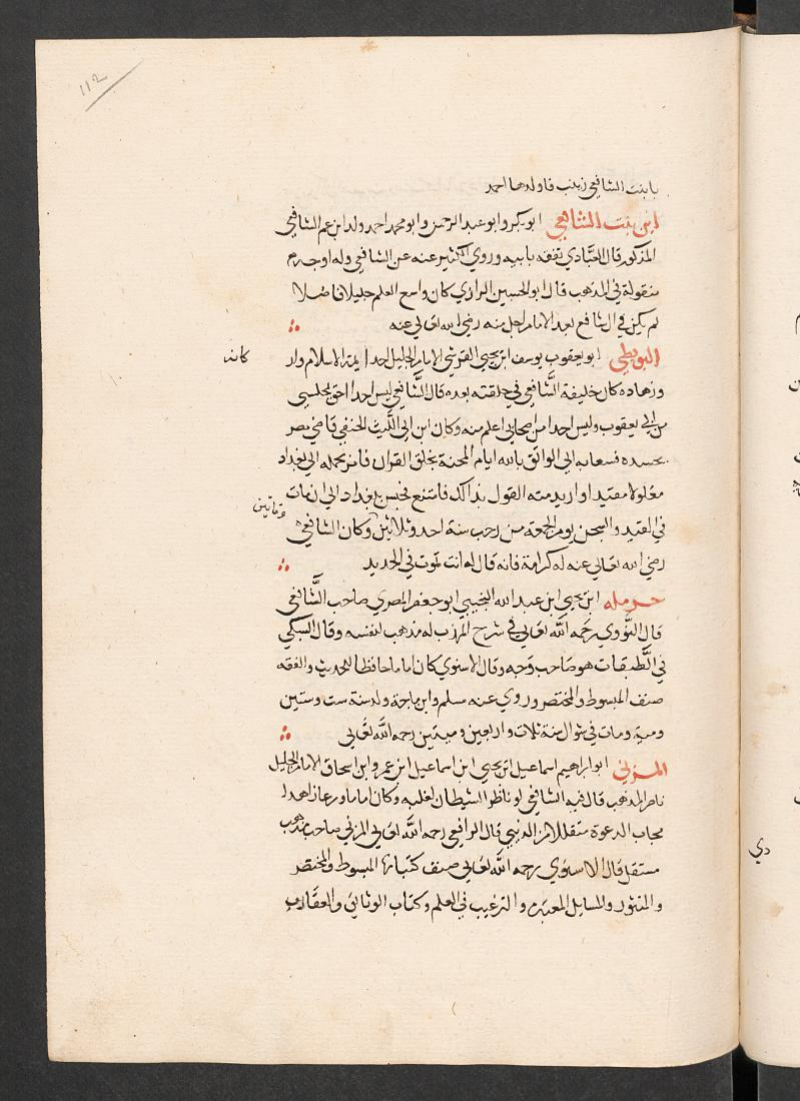 112
بابنت الشافعي زينب فاولدها احمد
ابن بنت الشافعي ابوبكر وابو عبد الرحمن وابو محمد احمد ولد ابن عم الشافعي
المذكور قال العبادي تفقه بابيه وروي الكثير عنه عن الشافعي وله اوجه
منقولة في المذهب قال ابو الحسين الرازي كان واسع العلم جليلا فاضلا
لم يكن في ال شافع بعد الامام اجل منه رضي الله تعالي عنه
البويطي ابو يعقوب يوسف ابن يحيي القرشي الامام الجليل احد ايمة الاسلام وار كانه
وزهاده كان خليفة الشافعي في حلقته بعده قال الشافعي ليس احدا احق بمجلسي
من ابي يعقوب وليس احدا من اصحابي اعلم منه وكان ابن ابي الليث الحنفي قاضي مصر
يحسده فسعا به الي الواثق بالله ايام المحنة بخلق القران فامر بحمله الي بغداد
مغلولا مقيد او اريد منه القول بذالك فامتنع فحبس ببغداد الي ان مات
في القيد والسجن يوم الجمعة من رجب سنة احد وثلاثين وكان الشافعي وماتين
رضي الله تعالي عنه له كرامة فانه قال له انت تموت في الحديد
حرمله ابن يحيي ابن عبد الله التجيبي ابو جعفر المصري صاحب الشافعي
قال النووي رحمه الله تعالي في شرح المهذب له مذهب لنفسه وقال السبكي
في الطبقات هو صاحب وجه وقال الاسنوي كان اماما حافظا للحديث والفقه
صنف المبسوط والمختصر وروي عنه مسلم وابن ماجة ولد سنة ست وستين
ومية ومات في شوال سنة ثلاث واربعين وميتين رحمه الله تعالي
المزني ابو ابراهيم اسماعيل ابن يحيي ابن اسماعيل ابن عمرو ابن اسحاق الامام الجليل
ناصر المذهب قال فيه الشافعي لو ناظر الشيطان لغلبه وكان اماما ورعا زاهدا
مجاب الدعوة متقللا من الدنيي قال الرافعي رحمه الله تعالي المزني صاحب مذهب
مستقل قال الاسنوي رحمه الله تعالي صنف كتبا منها المبسوط والمختصر
والمنثور والمسايل المعتبره والترغيب في العلم وكتاب الوثائق والعقارب
دي